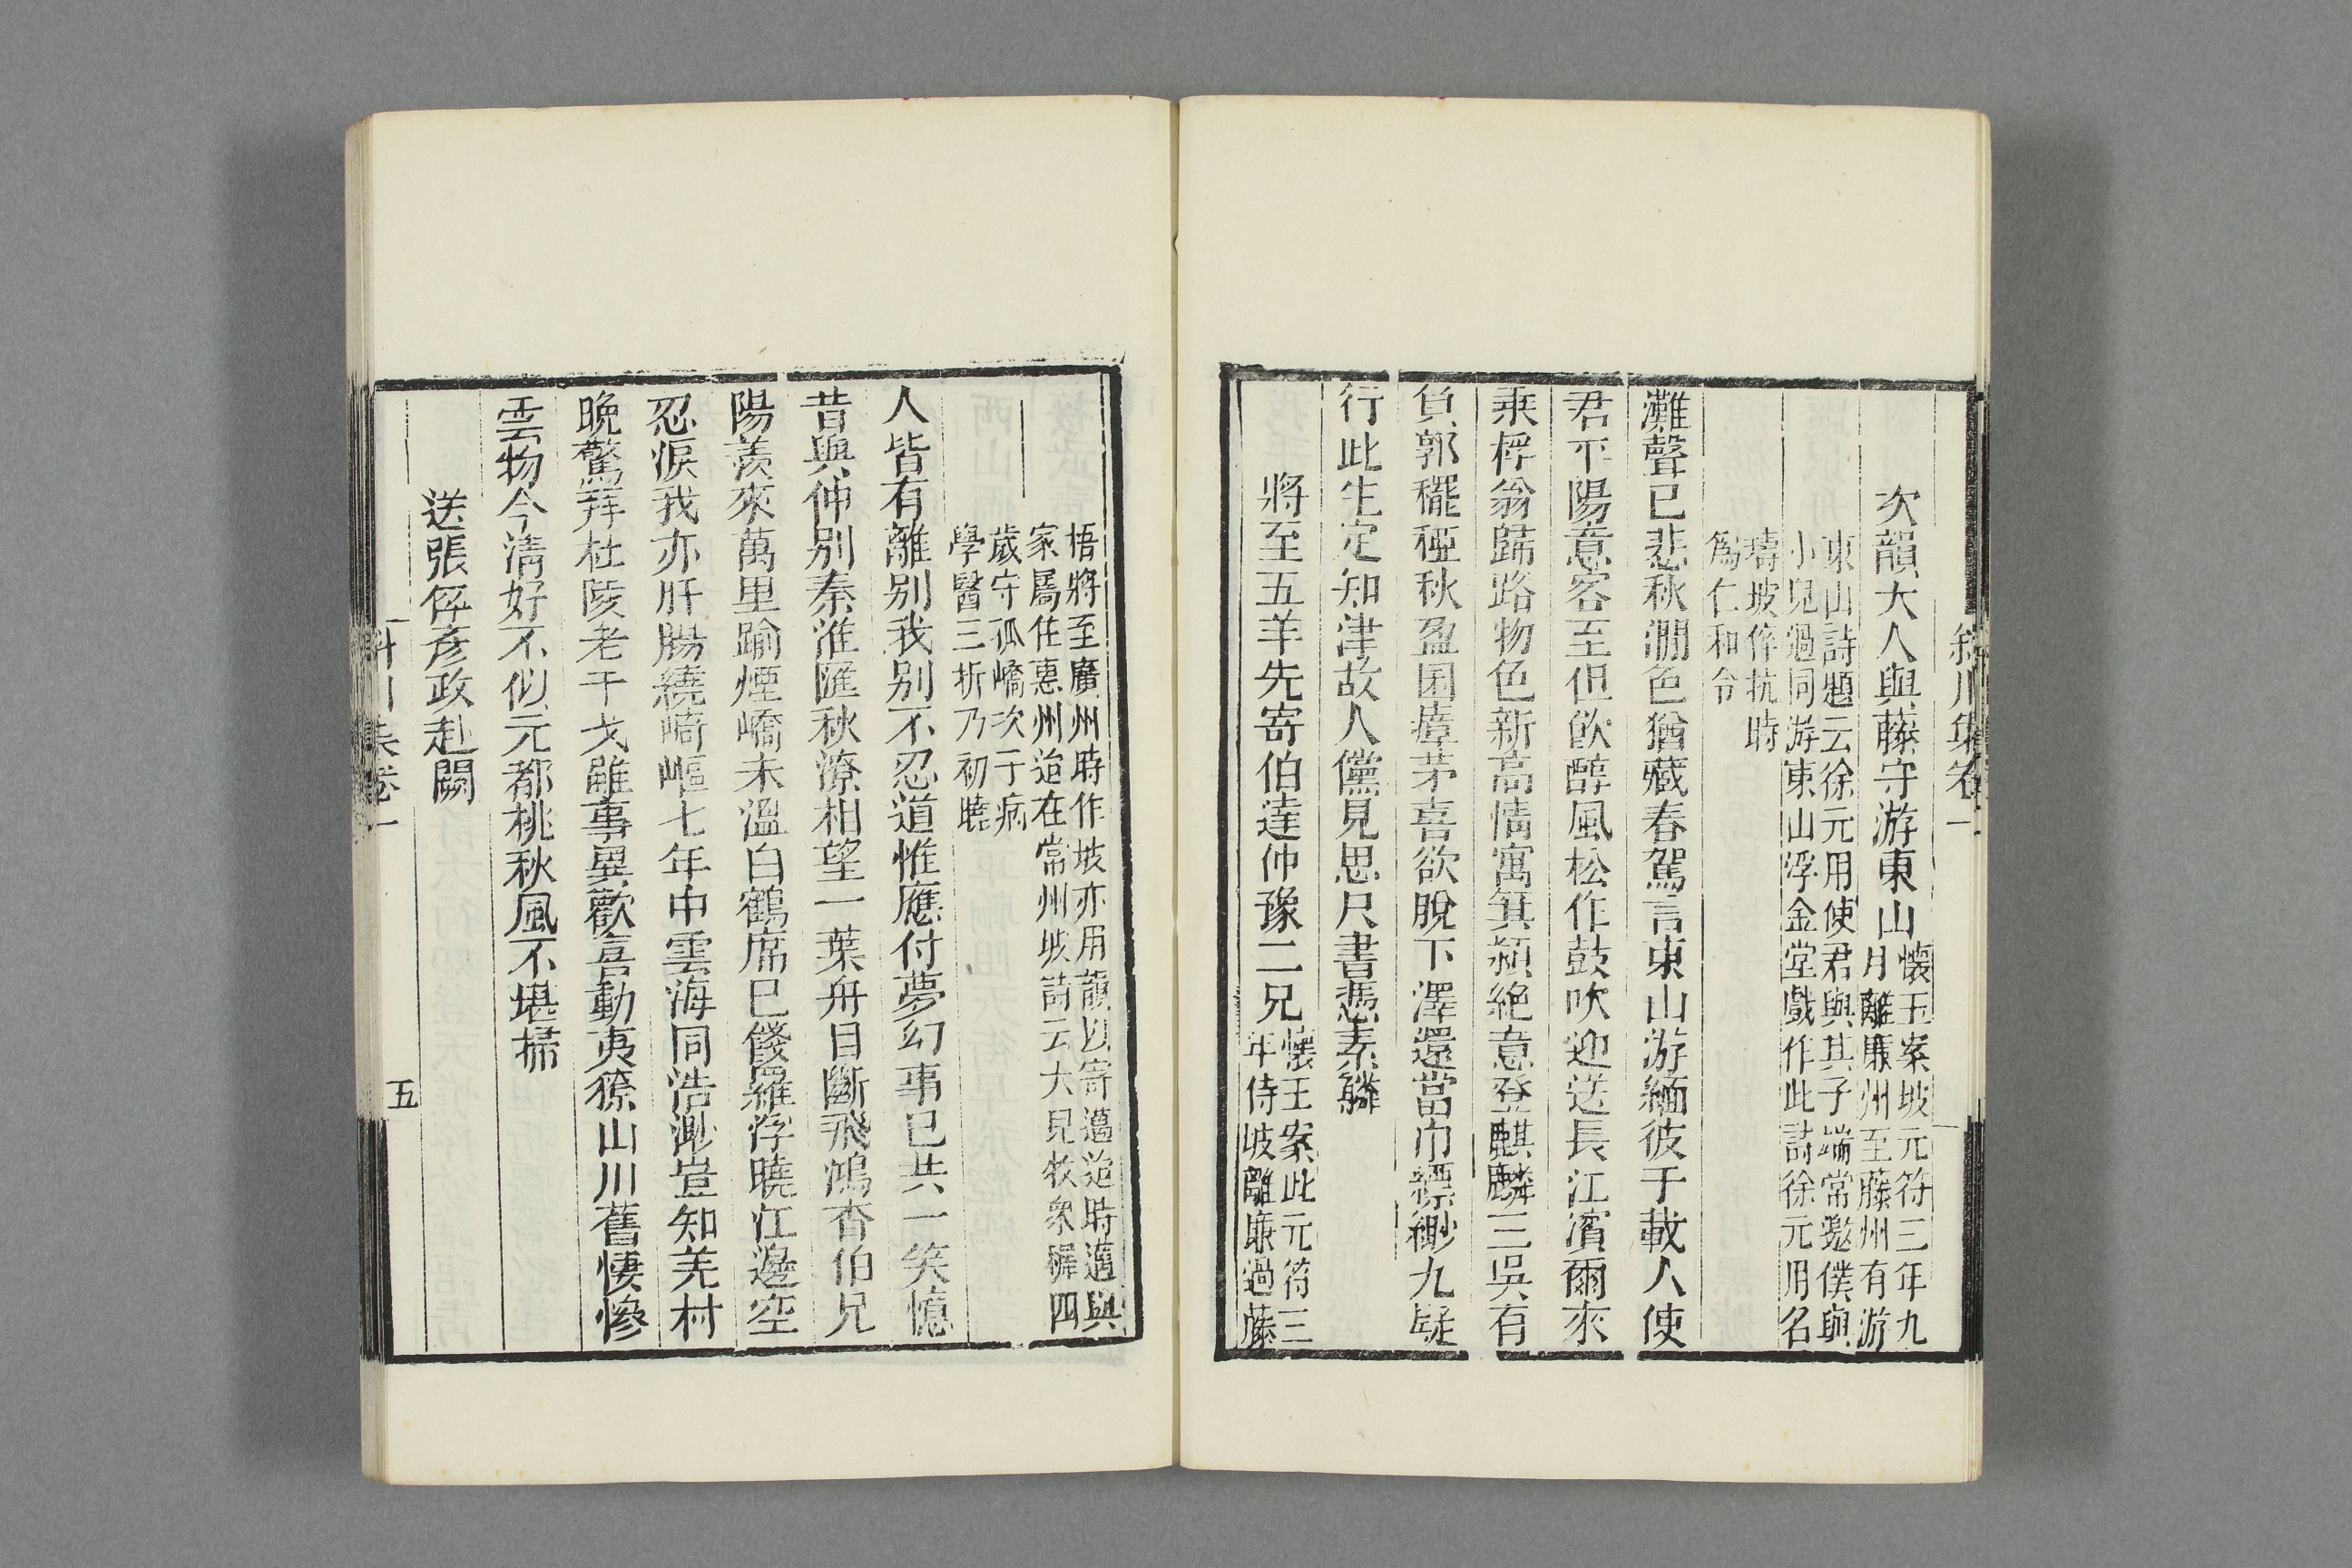 斜川集卷一
次韻大人與藤守游東山懷玉案坡元符三年九
月離廉州至藤州有游
東山詩題云徐元用使君與其子端常邀僕與
小兒過同游東山浮金堂戲作此詩徐元用名
璹坡倅抗時
爲仁和令
灘聲已悲秋淵色猶藏春駕言東山游緬彼千載人使
君平陽意客至但飲醇風松作鼓吹迎送長江濱爾來
乘桴翁歸路物色新高情寓箕潁絕意登麒麟三吳有
負郭䆉稏秋盈囷瘴茅喜欲脫下澤還當巾縹緲九疑
行此生定知津故人儻見思尺書憑素鱗
將至五羊先寄伯達仲豫二兄懷玉案此元符三
年侍坡離廉過藤
梧將至廣州時作坡亦用韻以寄邁迨時邁與
家屬住惠州迨在常州坡詩云大兒牧衆穉四
歲守孤嶠次子病
學醫三折乃初曉
人皆有離别我别不忍道惟應付夢幻事已共一笑憶
昔與仲别秦淮匯秋潦相望一葉舟目斷飛鴻杳伯兄
陽羨來萬里踰煙嶠未溫白鶴席已餞羅浮曉江邊空
忍淚我亦肝腸繞崎嶇七年中雲海同浩渺豈知羌村
晚驚拜杜陵老干戈雖事異歡喜動夷獠山川舊悽慘
雲物今清好不似元都桃秋風不堪掃
送張倅彥政赴闕
斜川集卷一
五